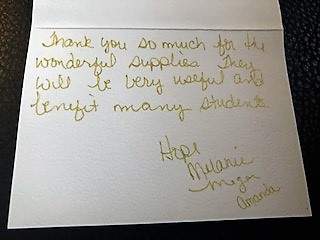 Thank you so much for the
wonderful supplies They
will be very useful and
benefit many students
Hope
Melanie
Megan
Amanda